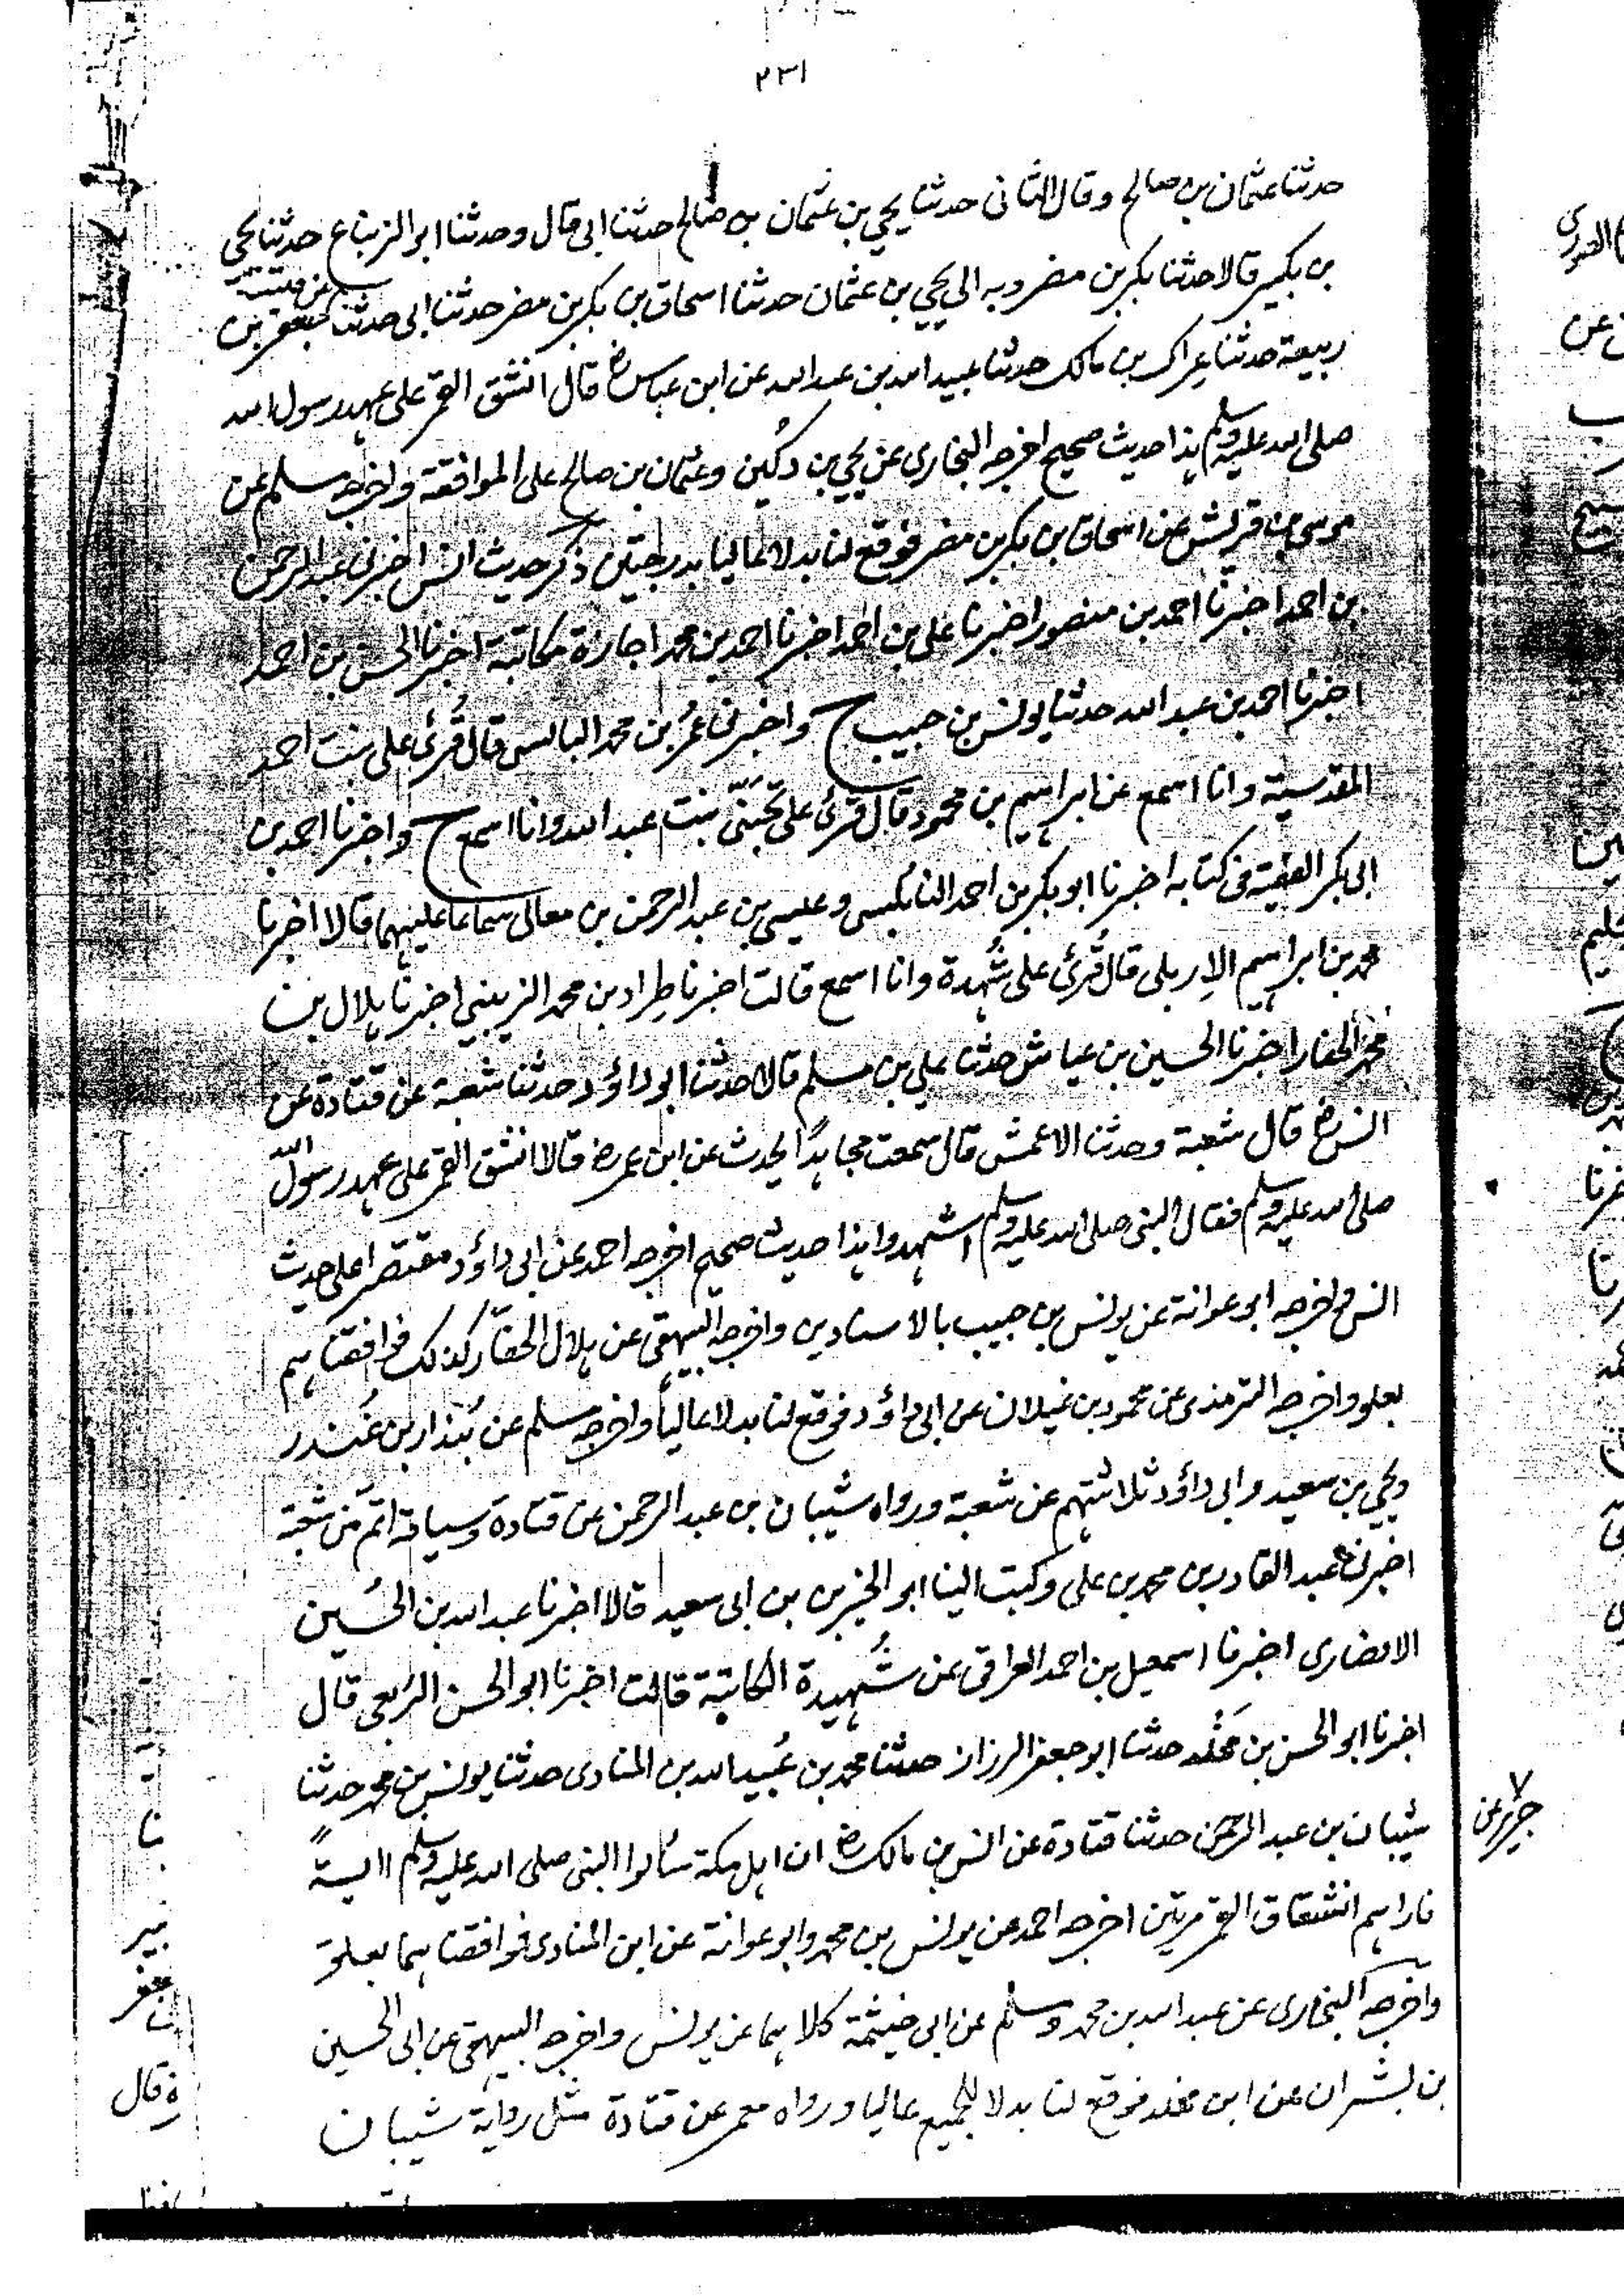 ٢٣١
حدثنا عثمان بن صالح وقال الثانى حدثنا يحيى بن عثمان بن صالح حدثنا ابى قال وحدثنا ابو الزنباع حدثنا يحيى
بن بكير قالا حدثنا بكر بن مضر وبه الى يحيى بن عثمان حدثنا اسحاق بن بكر بن مضر حدثنا ابى حدثنا جعفر بن
ربيعة حدثنا عراك بن مالك حدثنا عبيد الله بن عبد الله عن ابن عباس رض قال انشق القمر على عهد رسول الله
صلى الله عليه وسلم هذا حديث صحيح اخرجه البخارى عن يحيى بن دكين وعثمان بن صالح على الموافقة واخرجه مسلم عن
موسى بن قريش عن اسحاق بن بكر بن مضر فوقع لنا بدلا عاليا بدرجتين ذكر حديث انس اخبرنى عبد الرحمن
بن احمد اخبرنا احمد بن منصور اخبرنا على بن احمد اخبرنا احمد بن محمد اجازة مكاتبة اخبرنا الحسن بن احمد
اخبرنا احمد بن عبد الله حدثنا يونس بن حبيب ح واخبرنى عمر بن محمد البالسى قال قُرئ على بنت احمد
المقدسية وانا اسمع عن ابراهيم بن محمود قال قرئ على تجنّى بنت عبد الله وانا اسمع ح واخبرنا احمد بن
ابى بكر الفقيه فى كتابه اخبرنا ابو بكر بن احمد النابلسى وعيسى بن عبد الرحمن بن معالى سماعا عليهما قالا اخبرنا
محمد بن ابراهيم الاِربلى قال قُرئ على شُهدة وانا اسمع قالت اخبرنا طِراد بن محمد الزينبي اخبرنا هلال بن
محمد الحفار اخبرنا الحسين بن عياش حدثنا على بن مسلم قالا حدثنا ابو داؤد حدثنا شعبة عن قتادة عن
انس رض قال شعبة وحدثنا الاعمش قال سمعت مجاهدًا يحدث عن ابن عمر رض قالا انشق القمر على عهد رسول الله
صلى الله عليه وسلم فقال النبى صلى الله عليه وسلم اشهدوا هذا حديث صحيح اخرجه احمد عن ابى داؤد مقتصرا على حديث
انس واخرجه ابو عوانة عن يونس بن حبيب بالاسنادين واخرجه البيهقى عن هلال الحفّار كذلك فوافقناهم
بعلو واخرجه الترمذى عن محمود بن غيلان عن ابى داؤد فوقع لنا بدلا عالياً واخرجه مسلم عن بُندار بن غُندر
ويحيى بن سعيد وابى داؤد ثلاثتهم عن شعبة ورواه شيبان بن عبد الرحمن عن قتادة وسياقه اتم من شعبة
اخبرنا عبد القادر بن محمد بن على وكتب الينا ابو الخير بن ابى سعيد قالا اخبرنا عبد الله بن الحُسين
الانصارى اخبرنا اسمعيل بن احمد العراقى عن شُهيدة الكاتبة قالت اخبرنا ابو الحسن الرَبعى قال
اخبرنا ابو الحسن بن مَخلد حدثنا ابو جعفر الرزاز حدثنا محمد بن عُبيد الله بن المنادى حدثنا يونس بن محمد حدثنا
شيبان بن عبد الرحمن حدثنا قتادة عن انس بن مالك رض ان اهل مكة سألوا النبى صلى الله عليه وسلم آيةً
فاراهم انشقاق القمر مرتين اخرجه احمد عن يونس بن محمد وابو عوانة عن ابن المنادى فوافقناهما بعلوّ
واخرجه البخارى عن عبد الله بن محمد ومسلم عن ابى خيثمة كلاهما عن يونس واخرجه البيهقى عن ابى الحسين
بن بشران عن ابن مخلد فوقع لنا بدلا للجميع عاليا ورواه معمر عن قتادة مثل رواية شيبان